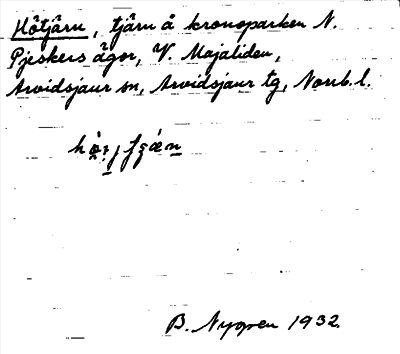 Hötjärn, tjärn å kronoparken N.
Pjeskers ägor, V. Majaliden,
Arvidsjaur sn, Arvidsjaur tg, Norrb. l.
B. Nygren 1932